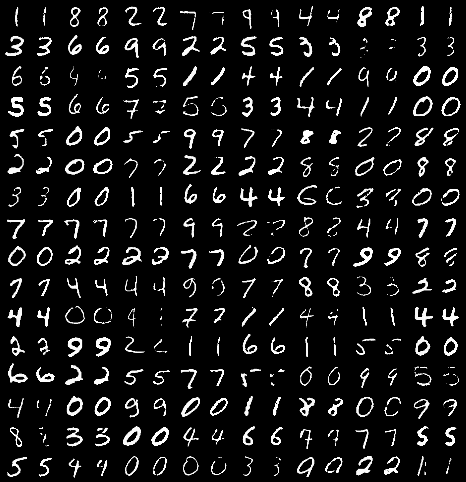 1 1 8 8 2 2 7 7 9 9 4 4 8 8 1 1
3 3 6 6 9 9 2 2 5 5 3 3 3 3
6 6 4 5 5 1 1 4 4 1 1 9 0 0
5 5 6 6 7 7 5 5 3 3 4 4 1 1 0 0
5 5 0 0 5 5 9 9 7 7 8 8 7 7 8 8
2 2 0 0 7 7 2 2 2 2 8 8 0 0 8 8
3 3 0 0 1 1 6 6 4 4 6 3 3 0 0
7 7 7 7 7 7 9 9 2 2 8 8 4 4 7 7
0 0 2 2 2 2 7 7 0 0 7 7 9 9 8 8
7 7 4 4 4 4 9 9 7 7 8 8 3 3 2 2
4 4 0 0 4 7 7 1 1 4 4 1 1 4 4
2 2 9 9 2 2 1 1 6 6 1 1 5 5 0 0
6 6 2 2 5 5 7 7 5 0 0 9 9 5 5
4 4 0 0 9 9 0 0 1 1 8 8 0 0 9 9
8 3 3 0 0 4 4 6 6 7 7 7 7 5 5
5 5 4 4 0 0 0 0 3 3 9 9 2 2 1 1